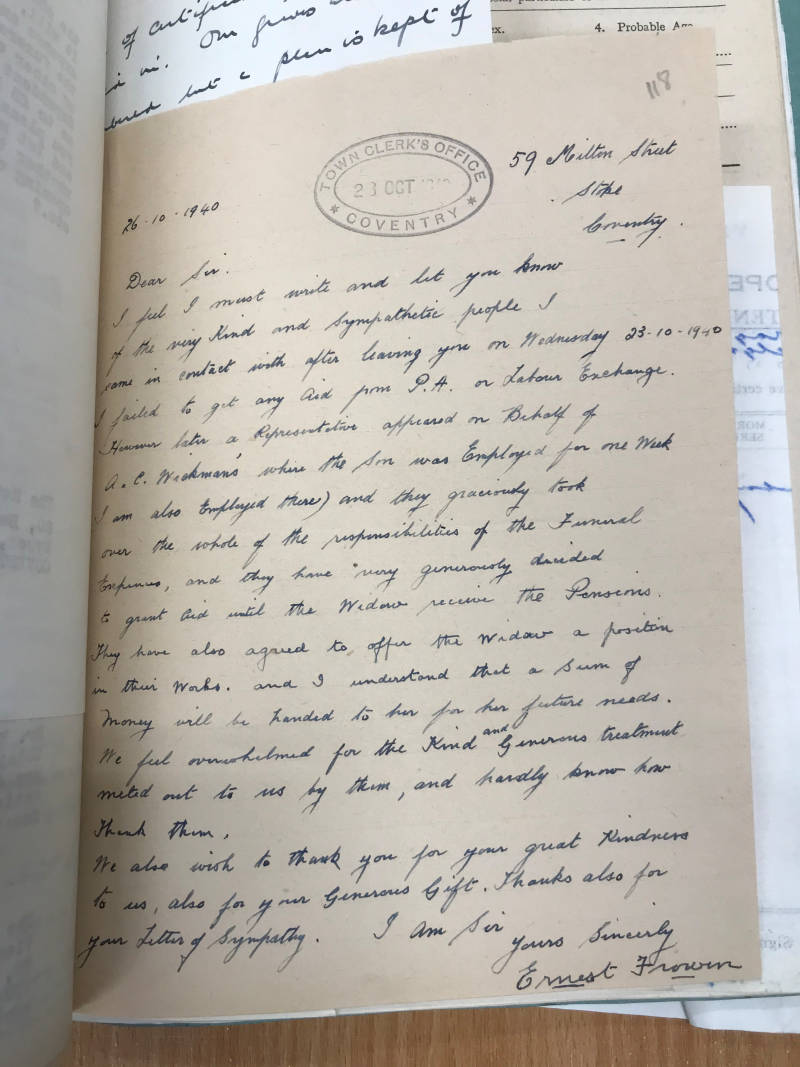 of certifi
d in. Our graves
bered but a plan is kept of
ex.
4. Probable Age
118
TOWN CLERK'S OFFICE
23 OCT
* COVENTRY *
59 Milton Street
Stoke
Coventry.
26-10-1940
Dear Sir.
I feel I must write and let you know
of the very Kind and Sympathetic people I
came in contact with after leaving you on Wednesday 23-10-1940
I failed to get any Aid from P.A. or Labour Exchange.
However later a Representative appeared on Behalf of
A.C. Wickman's where the Son was Employed for one Week
I am also Employed there) and they graciously took
over the whole of the responsibilities of the Funeral
Expenses, and they have very generously decided
to grant Aid until the Widow receive the Pensions.
They have also agreed to offer the Widow a position
in their Works. and I understand that a Sum of
Money will be handed to her for her future needs.
We feel overwhelmed for the Kind and Generous treatment
meted out to us by them, and hardly know how
Thank them,
We also wish to thank you for your great Kindness
to us, also for your Generous Gift. Thanks also for
your Letter of Sympathy. I Am Sir
yours Sincerly
Ernest Frowen